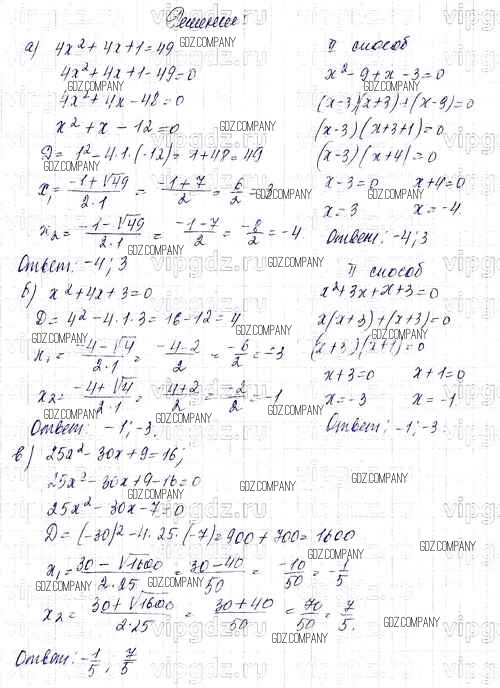 Решение:
а) 4x² + 4x + 1 = 49
4x² + 4x + 1 - 49 = 0
4x² + 4x - 48 = 0
x² + x - 12 = 0
D = 1² - 4·1·(-12) = 1 + 48 = 49
x₁ = (-1 + √49)/(2·1) = (-1 + 7)/2 = 6/2 = 3
x₂ = (-1 - √49)/(2·1) = (-1 - 7)/2 = -8/2 = -4
Ответ: -4; 3
II способ
x² - 9 + x - 3 = 0
(x-3)(x+3) + (x-3) = 0
(x-3)(x+3+1) = 0
(x-3)(x+4) = 0
x - 3 = 0 x + 4 = 0
x = 3 x = -4
Ответ: -4; 3
б) x² + 4x + 3 = 0
D = 4² - 4·1·3 = 16 - 12 = 4
x₁ = (-4 - √4)/(2·1) = (-4 - 2)/2 = -6/2 = -3
x₂ = (-4 + √4)/(2·1) = (-4 + 2)/2 = -2/2 = -1
Ответ: -1; -3.
II способ
x² + 3x + x + 3 = 0
x(x+3) + (x+3) = 0
(x+3)(x+1) = 0
x + 3 = 0 x + 1 = 0
x = -3 x = -1
Ответ: -1; -3.
в) 25x² - 30x + 9 = 16;
25x² - 30x + 9 - 16 = 0
25x² - 30x - 7 = 0
D = (-30)² - 4·25·(-7) = 900 + 700 = 1600
x₁ = (30 - √1600)/(2·25) = (30 - 40)/50 = -10/50 = -1/5
x₂ = (30 + √1600)/(2·25) = (30 + 40)/50 = 70/50 = 7/5.
Ответ: -1/5; 7/5
GDZ.COMPANY
vipgdz.ru